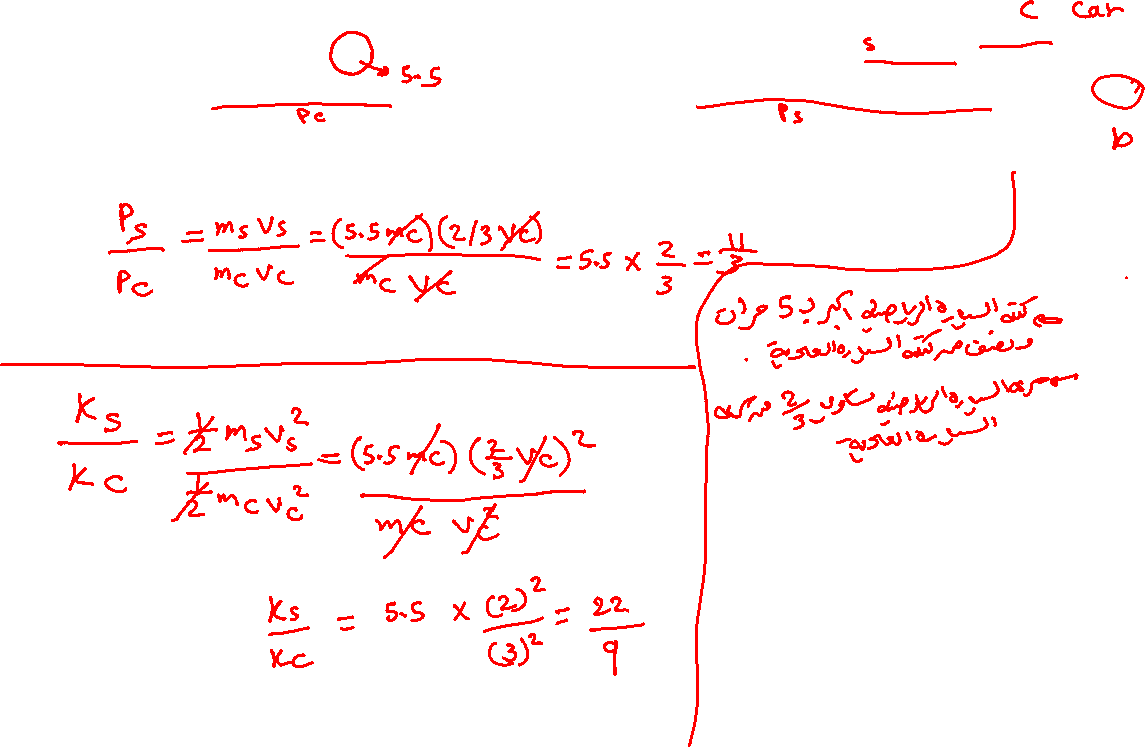 c car
s
5.5
Pc
Ps
b
Ps/Pc = ms vs / mc vc = (5.5 mc)(2/3 vc) / mc vc = 5.5 × 2/3 = 11/3
كتلة السيارة الرياضية أكبر ب 5 مرات
ونصف من كتلة السيارة العادية.
سرعة السيارة الرياضية تساوي 2/3 من
السيارة العادية
Ks/Kc = 1/2 ms vs² / 1/2 mc vc² = (5.5 mc) (2/3 vc)² / mc vc²
Ks/Kc = 5.5 × (2)²/(3)² = 22/9